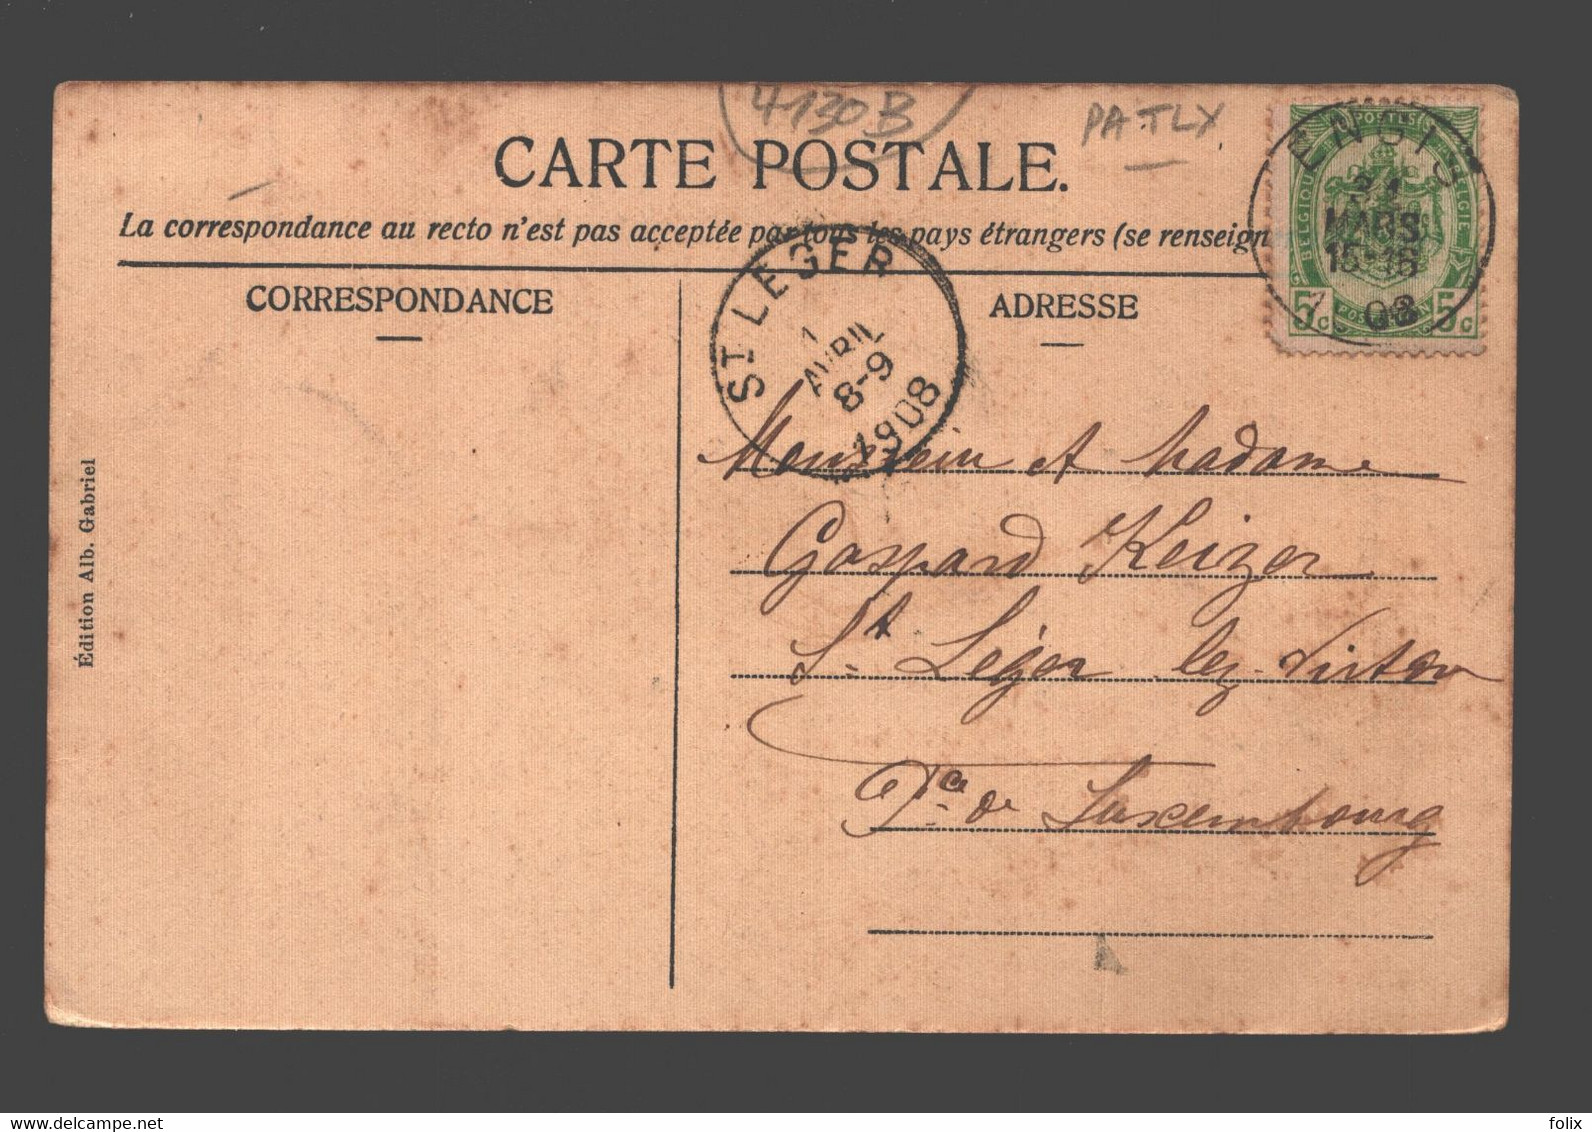 4130B
PATLX
CARTE POSTALE.
La correspondance au recto n'est pas acceptée par tous les pays étrangers (se renseign
CORRESPONDANCE
ADRESSE
ENGIS
31
MARS
15-16
08
POSTES
BELGIQUE
BELGIË
5c
5c
ST LEGER
1
AVRIL
8-9
1908
Monsieur et Madame
Gaspard Keizer
St Léger lez-Virton
Pce de Luxembourg
Édition Alb. Gabriel
folix